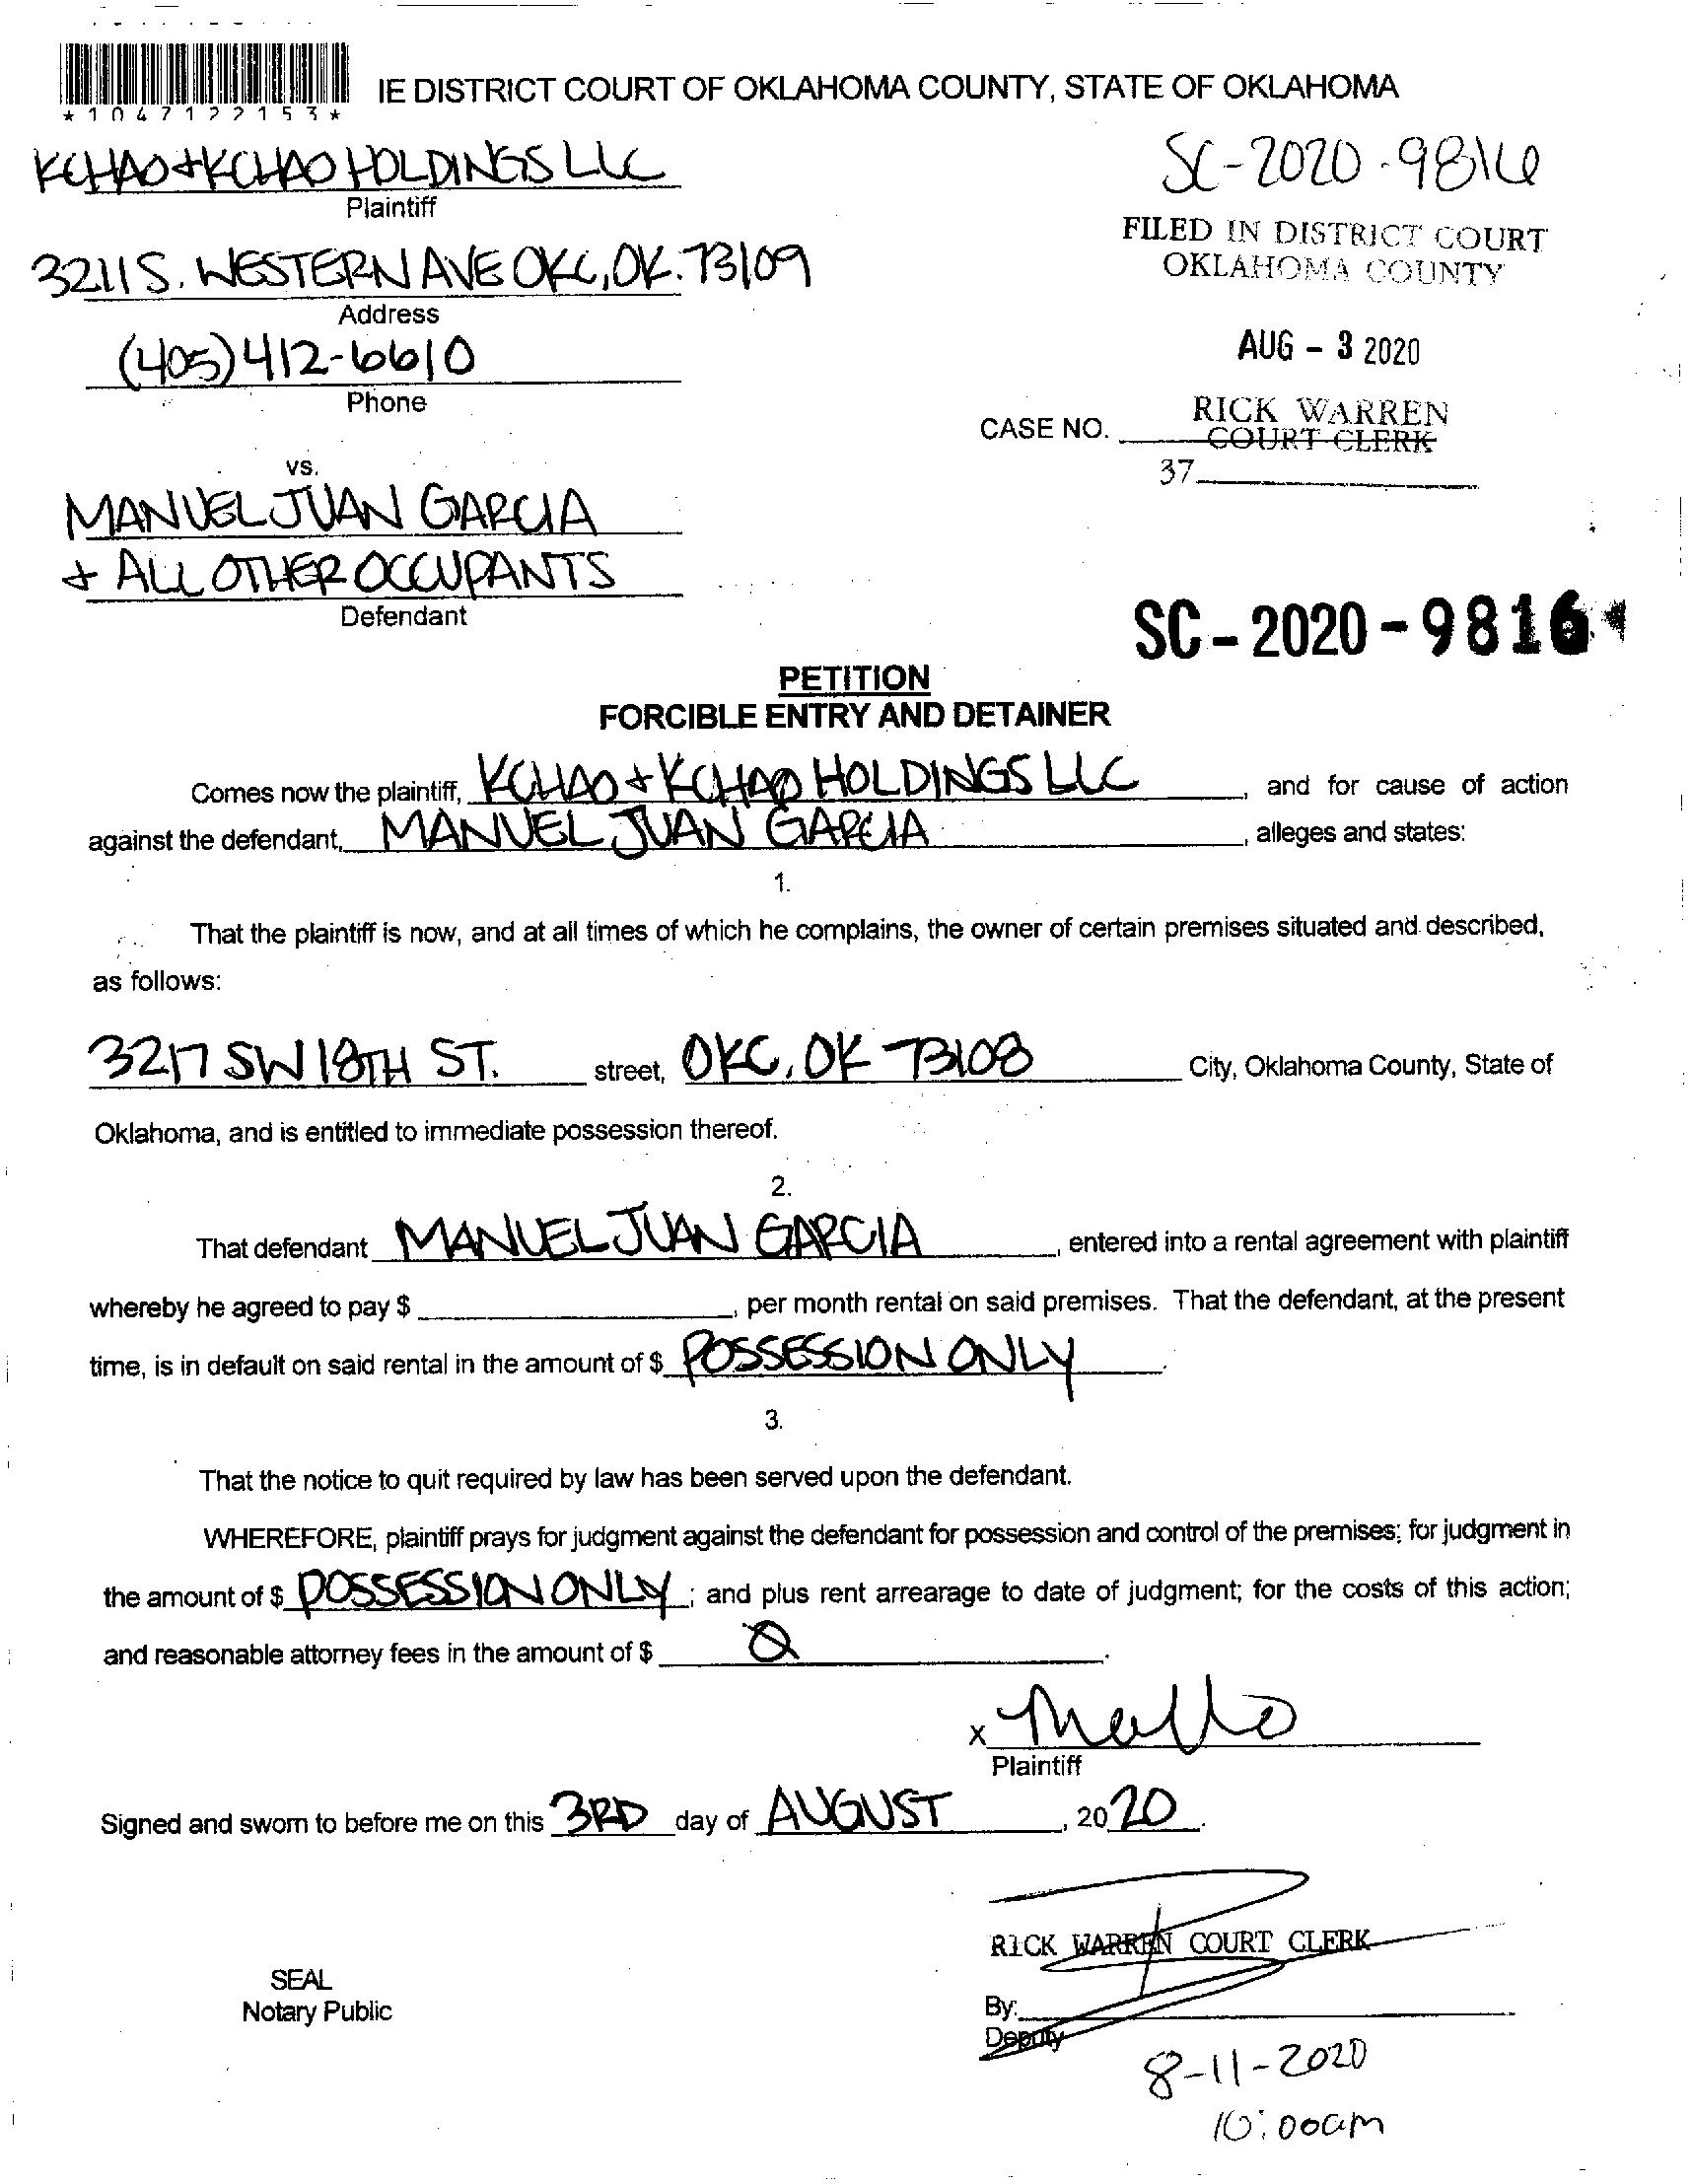 IE DISTRICT COURT OF OKLAHOMA COUNTY, STATE OF OKLAHOMA
*1047122153*
KCHAO + KCHAO HOLDINGS LLC
Plaintiff
SC-2020-9816
FILED IN DISTRICT COURT
OKLAHOMA COUNTY
3211 S. WESTERN AVE OKC, OK. 73109
Address
AUG - 3 2020
(405) 412-6610
Phone
RICK WARREN
CASE NO. COURT CLERK
37
vs.
MANUEL JUAN GARCIA
+ ALL OTHER OCCUPANTS
Defendant
SC-2020-9816
PETITION
FORCIBLE ENTRY AND DETAINER
Comes now the plaintiff, KCHAO + KCHAO HOLDINGS LLC, and for cause of action
against the defendant, MANUEL JUAN GARCIA, alleges and states:
1.
That the plaintiff is now, and at all times of which he complains, the owner of certain premises situated and described,
as follows:
3217 SW 18TH ST. street, OKC, OK 73108 City, Oklahoma County, State of
Oklahoma, and is entitled to immediate possession thereof.
2.
That defendant MANUEL JUAN GARCIA, entered into a rental agreement with plaintiff
whereby he agreed to pay $ , per month rental on said premises. That the defendant, at the present
time, is in default on said rental in the amount of $ POSSESSION ONLY.
3.
That the notice to quit required by law has been served upon the defendant.
WHEREFORE, plaintiff prays for judgment against the defendant for possession and control of the premises; for judgment in
the amount of $ POSSESSION ONLY; and plus rent arrearage to date of judgment; for the costs of this action;
and reasonable attorney fees in the amount of $ Ø.
X
Plaintiff
Signed and sworn to before me on this 3RD day of AUGUST, 2020.
RICK WARREN COURT CLERK
SEAL
Notary Public
By:
Deputy
8-11-2020
10:00am